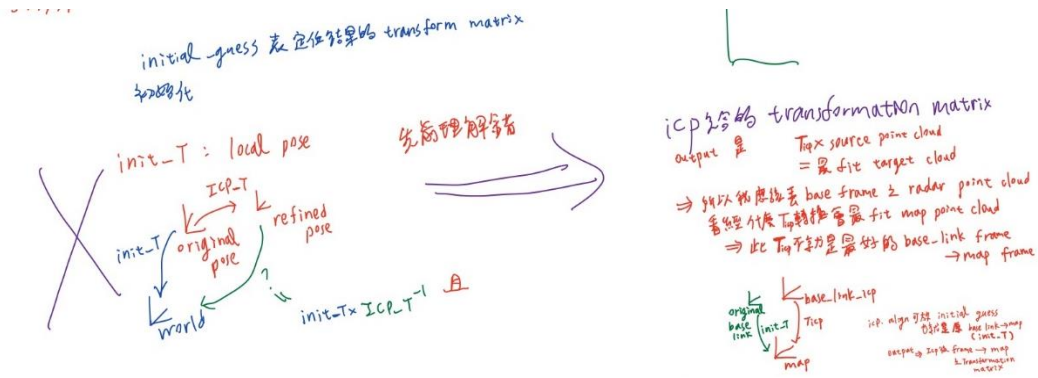 initial_guess 表定位結果的 transform matrix
初始化
init_T : local pose
ICP_T
refined
pose
init_T
original
pose
world
?
init_T x ICP_T⁻¹
且
先前理解錯
icp 給的 transformation matrix
output 是 Ticp x source point cloud
= 最 fit target cloud
⇒ 所以我應該丟 base frame 之 radar point cloud
看經什麼 Ticp 轉換會最 fit map point cloud
⇒ 此 Ticp 不就是最好的 base_link frame
→ map frame
base_link_icp
original
base
link
init_T
Ticp
map
icp. align 可以 initial guess
base link → map
(init_T)
output ⇒ Icp frame → map
之 Transformation
matrix